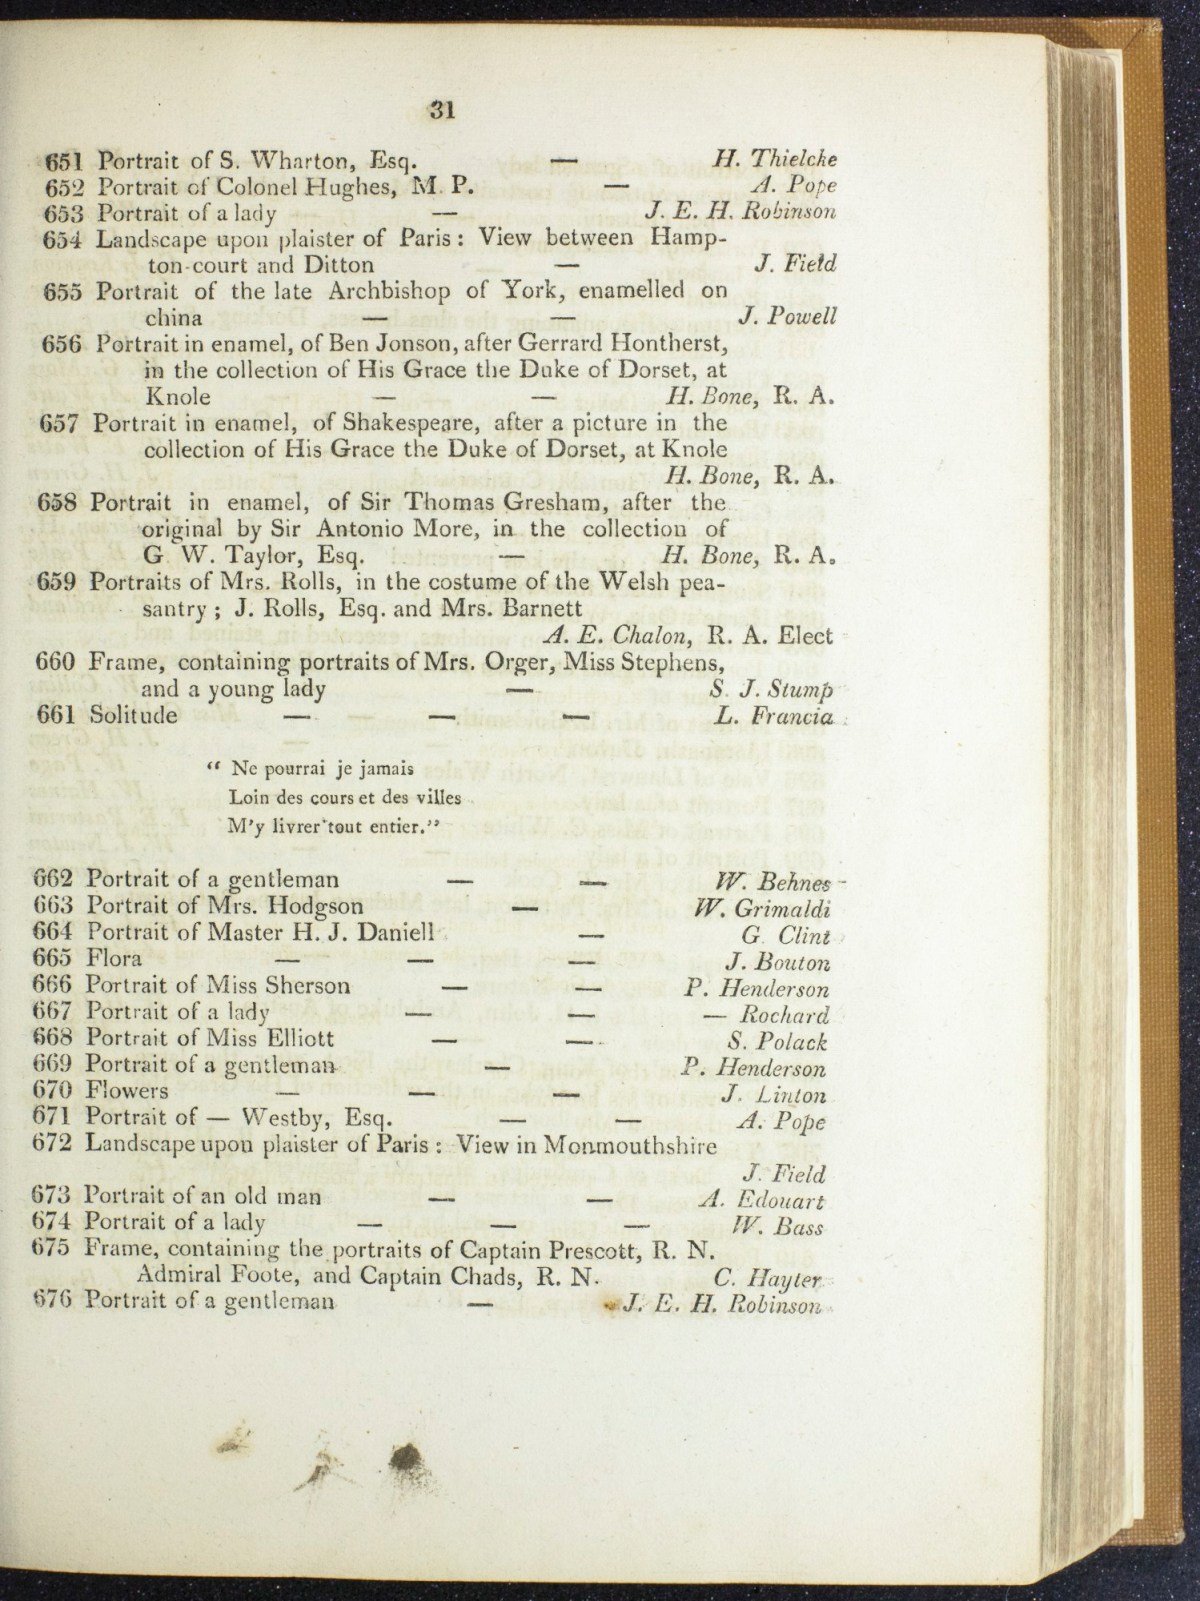 31
651 Portrait of S. Wharton, Esq. — H. Thielcke
652 Portrait of Colonel Hughes, M. P. — A. Pope
653 Portrait of a lady — J. E. H. Robinson
654 Landscape upon plaister of Paris: View between Hamp-
ton-court and Ditton — J. Field
655 Portrait of the late Archbishop of York, enamelled on
china — — J. Powell
656 Portrait in enamel, of Ben Jonson, after Gerrard Hontherst,
in the collection of His Grace the Duke of Dorset, at
Knole — — H. Bone, R. A.
657 Portrait in enamel, of Shakespeare, after a picture in the
collection of His Grace the Duke of Dorset, at Knole
H. Bone, R. A.
658 Portrait in enamel, of Sir Thomas Gresham, after the
original by Sir Antonio More, in the collection of
G W. Taylor, Esq. — H. Bone, R. A.
659 Portraits of Mrs. Rolls, in the costume of the Welsh pea-
santry; J. Rolls, Esq. and Mrs. Barnett
A. E. Chalon, R. A. Elect
660 Frame, containing portraits of Mrs. Orger, Miss Stephens,
and a young lady — S. J. Stump
661 Solitude — — — L. Francia
“ Ne pourrai je jamais
Loin des cours et des villes
M'y livrer tout entier.”
662 Portrait of a gentleman — — W. Behnes
663 Portrait of Mrs. Hodgson — W. Grimaldi
664 Portrait of Master H. J. Daniell — G. Clint
665 Flora — — — J. Bouton
666 Portrait of Miss Sherson — — P. Henderson
667 Portrait of a lady — — — Rochard
668 Portrait of Miss Elliott — — S. Polack
669 Portrait of a gentleman — P. Henderson
670 Flowers — — — J. Linton
671 Portrait of — Westby, Esq. — — A. Pope
672 Landscape upon plaister of Paris: View in Monmouthshire
J. Field
673 Portrait of an old man — — A. Edouart
674 Portrait of a lady — — — W. Bass
675 Frame, containing the portraits of Captain Prescott, R. N.
Admiral Foote, and Captain Chads, R. N. C. Hayter
676 Portrait of a gentleman — J. E. H. Robinson